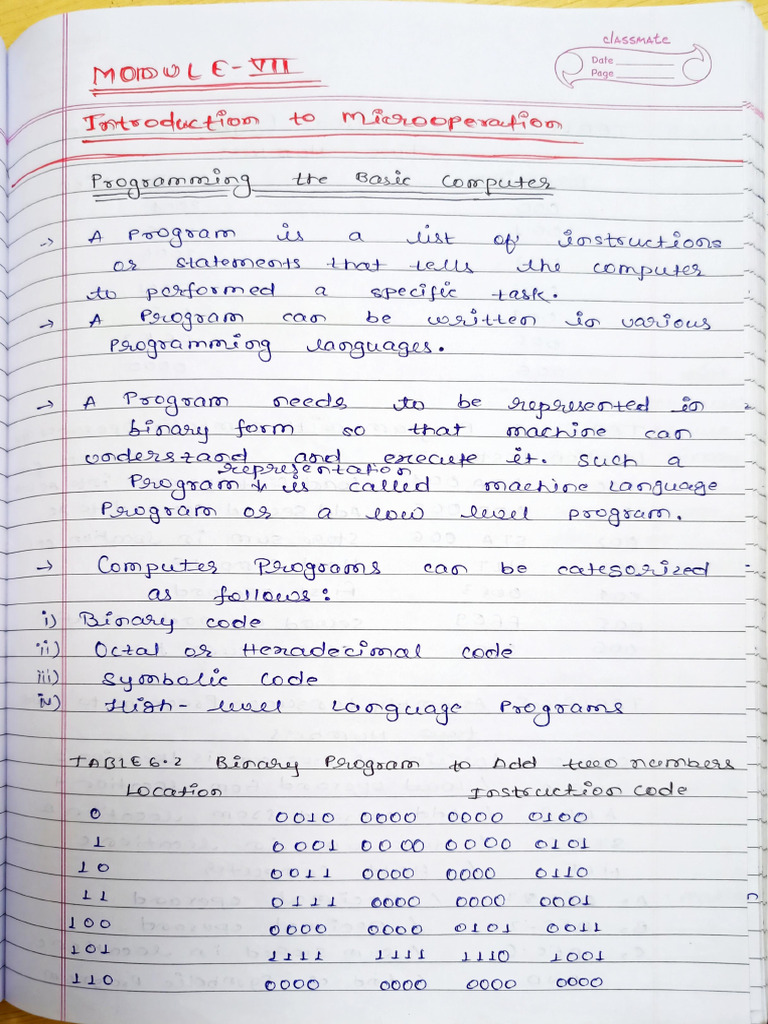 classmate
Date
Page
MODULE-VII
Introduction to Microoperation
Programming the Basic Computer
→ A Program is a list of instructions
or statements that tells the computer
to performed a specific task.
→ A Program can be written in various
programming languages.
→ A Program needs to be represented in
binary form so that machine can
understand and execute it. Such a
representation
Program is called machine language
Program or a low level program.
→ Computer Programs can be categorized
as follows:
i) Binary code
ii) Octal or Hexadecimal code
iii) Symbolic Code
iv) High-level Language Programs
TABLE 6.2 Binary Program to Add two numbers
Location Instruction code
0 0010 0000 0000 0100
1 0001 0000 0000 0101
10 0011 0000 0000 0110
11 0111 0000 0000 0001
100 0000 0000 0101 0011
101 1111 1111 1110 1001
110 0000 0000 0000 0000